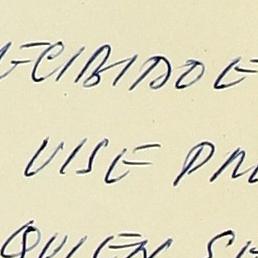 ECIBIDO E
VISE PA
QUIEN SE